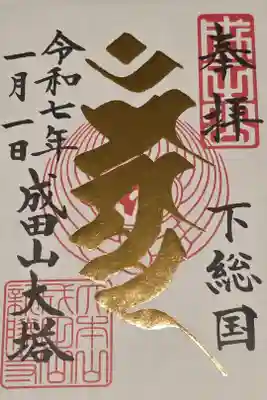 奉拝
下総国
成田山大塔
令和七年
一月一日